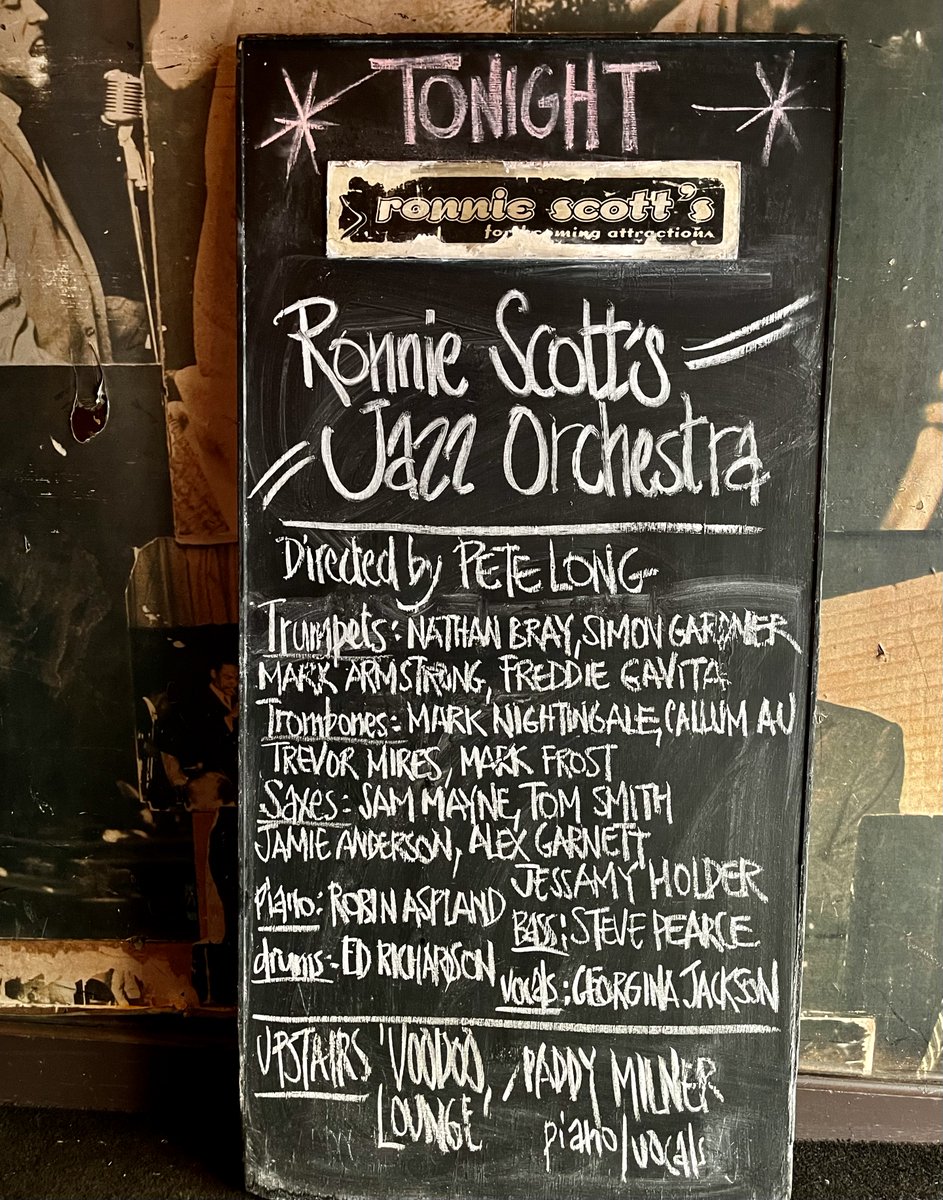 TONIGHT
ronnie scott's
forthcoming attractions
Ronnie Scott's
Jazz Orchestra
Directed by PETE LONG
Trumpets: NATHAN BRAY, SIMON GARDNER
MARK ARMSTRONG, FREDDIE GAVITA
Trombones: MARK NIGHTINGALE, CALLUM AU
TREVOR MIRES, MARK FROST
Saxes: SAM MAYNE, TOM SMITH
JAMIE ANDERSON, ALEX GARNETT
JESSAMY HOLDER
Piano: ROBIN ASPLAND
BASS: STEVE PEARCE
drums: ED RICHARDSON
vocals: GEORGINA JACKSON
UPSTAIRS 'VOODOO
LOUNGE'
PADDY MILNER
piano/vocals